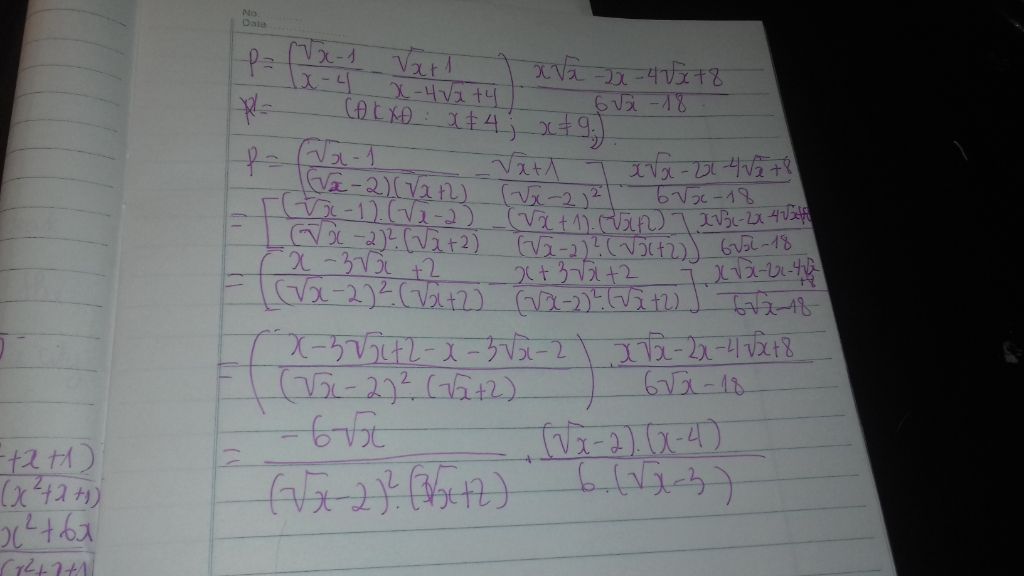 No.
Date
P = (√x-1 / x-4 - √x+1 / x-4√x+4) . x√x - 2x - 4√x + 8 / 6√x - 18
x ≠ 4 ; x ≠ 9 ; )
P = [√x-1 / (√x-2)(√x+2) - √x+1 / (√x-2)²] . x√x - 2x - 4√x + 8 / 6√x - 18
= [(√x-1).(√x-2) / (√x-2)².(√x+2) - (√x+1).(√x+2) / (√x-2)².(√x+2)] . x√x-2x-4√x+8 / 6√x-18
= [x - 3√x + 2 / (√x-2)².(√x+2) - x + 3√x + 2 / (√x-2)².(√x+2)] . x√x-2x-4√x+8 / 6√x-18
= (x-3√x+2-x-3√x-2 / (√x-2)².(√x+2)) . x√x-2x-4√x+8 / 6√x-18
= -6√x / (√x-2)².(√x+2) . (√x-2).(x-4) / 6.(√x-3)
+x+1)
(x²+x+1)
x²+6x
(x²+x+1)